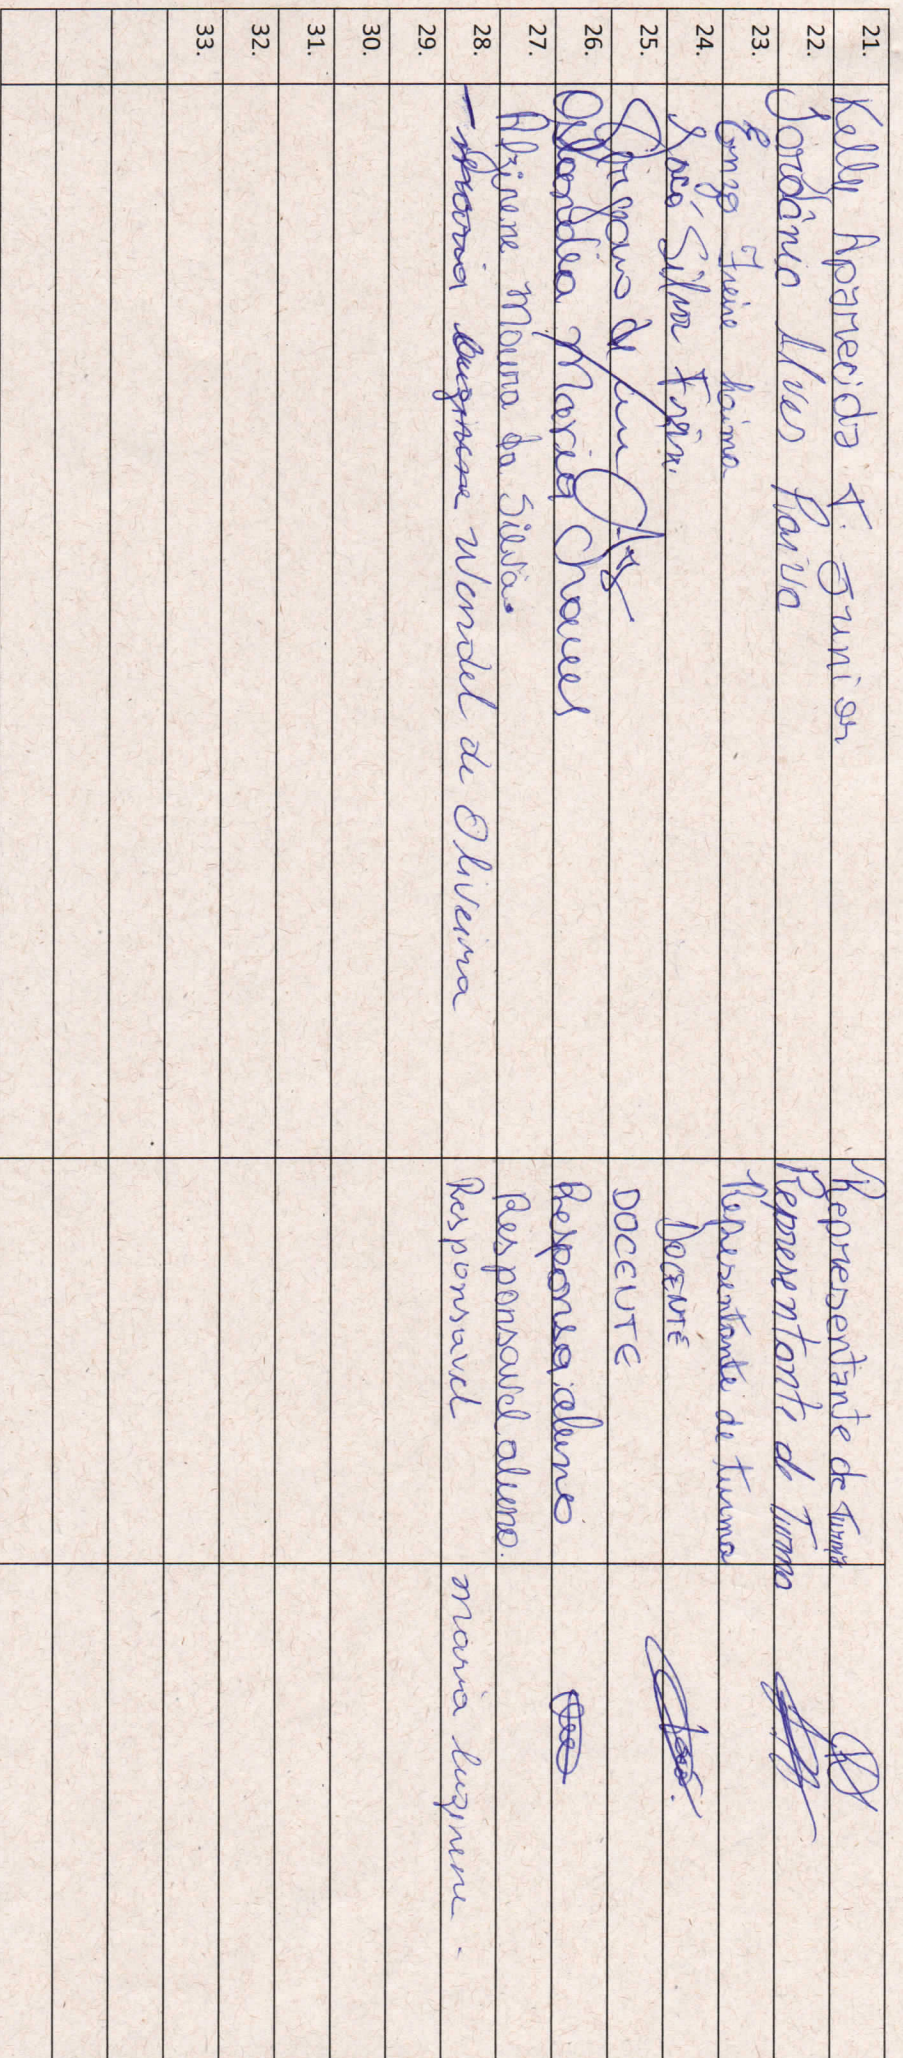 21. Kelly Aparecida T. Junior Representante de Turma
22. Jordânia Alves Paiva Representante de Turma
23. Enzo Freire Representante de turma
24. José Silva Freire DOCENTE
25. de DOCENTE
26. Maria Chaves Responsa. aluno
27. Alzirene Moura da Silva. Responsavel aluno.
28. Wendel de Oliveira Responsavel maria luzinene.
29.
30.
31.
32.
33.